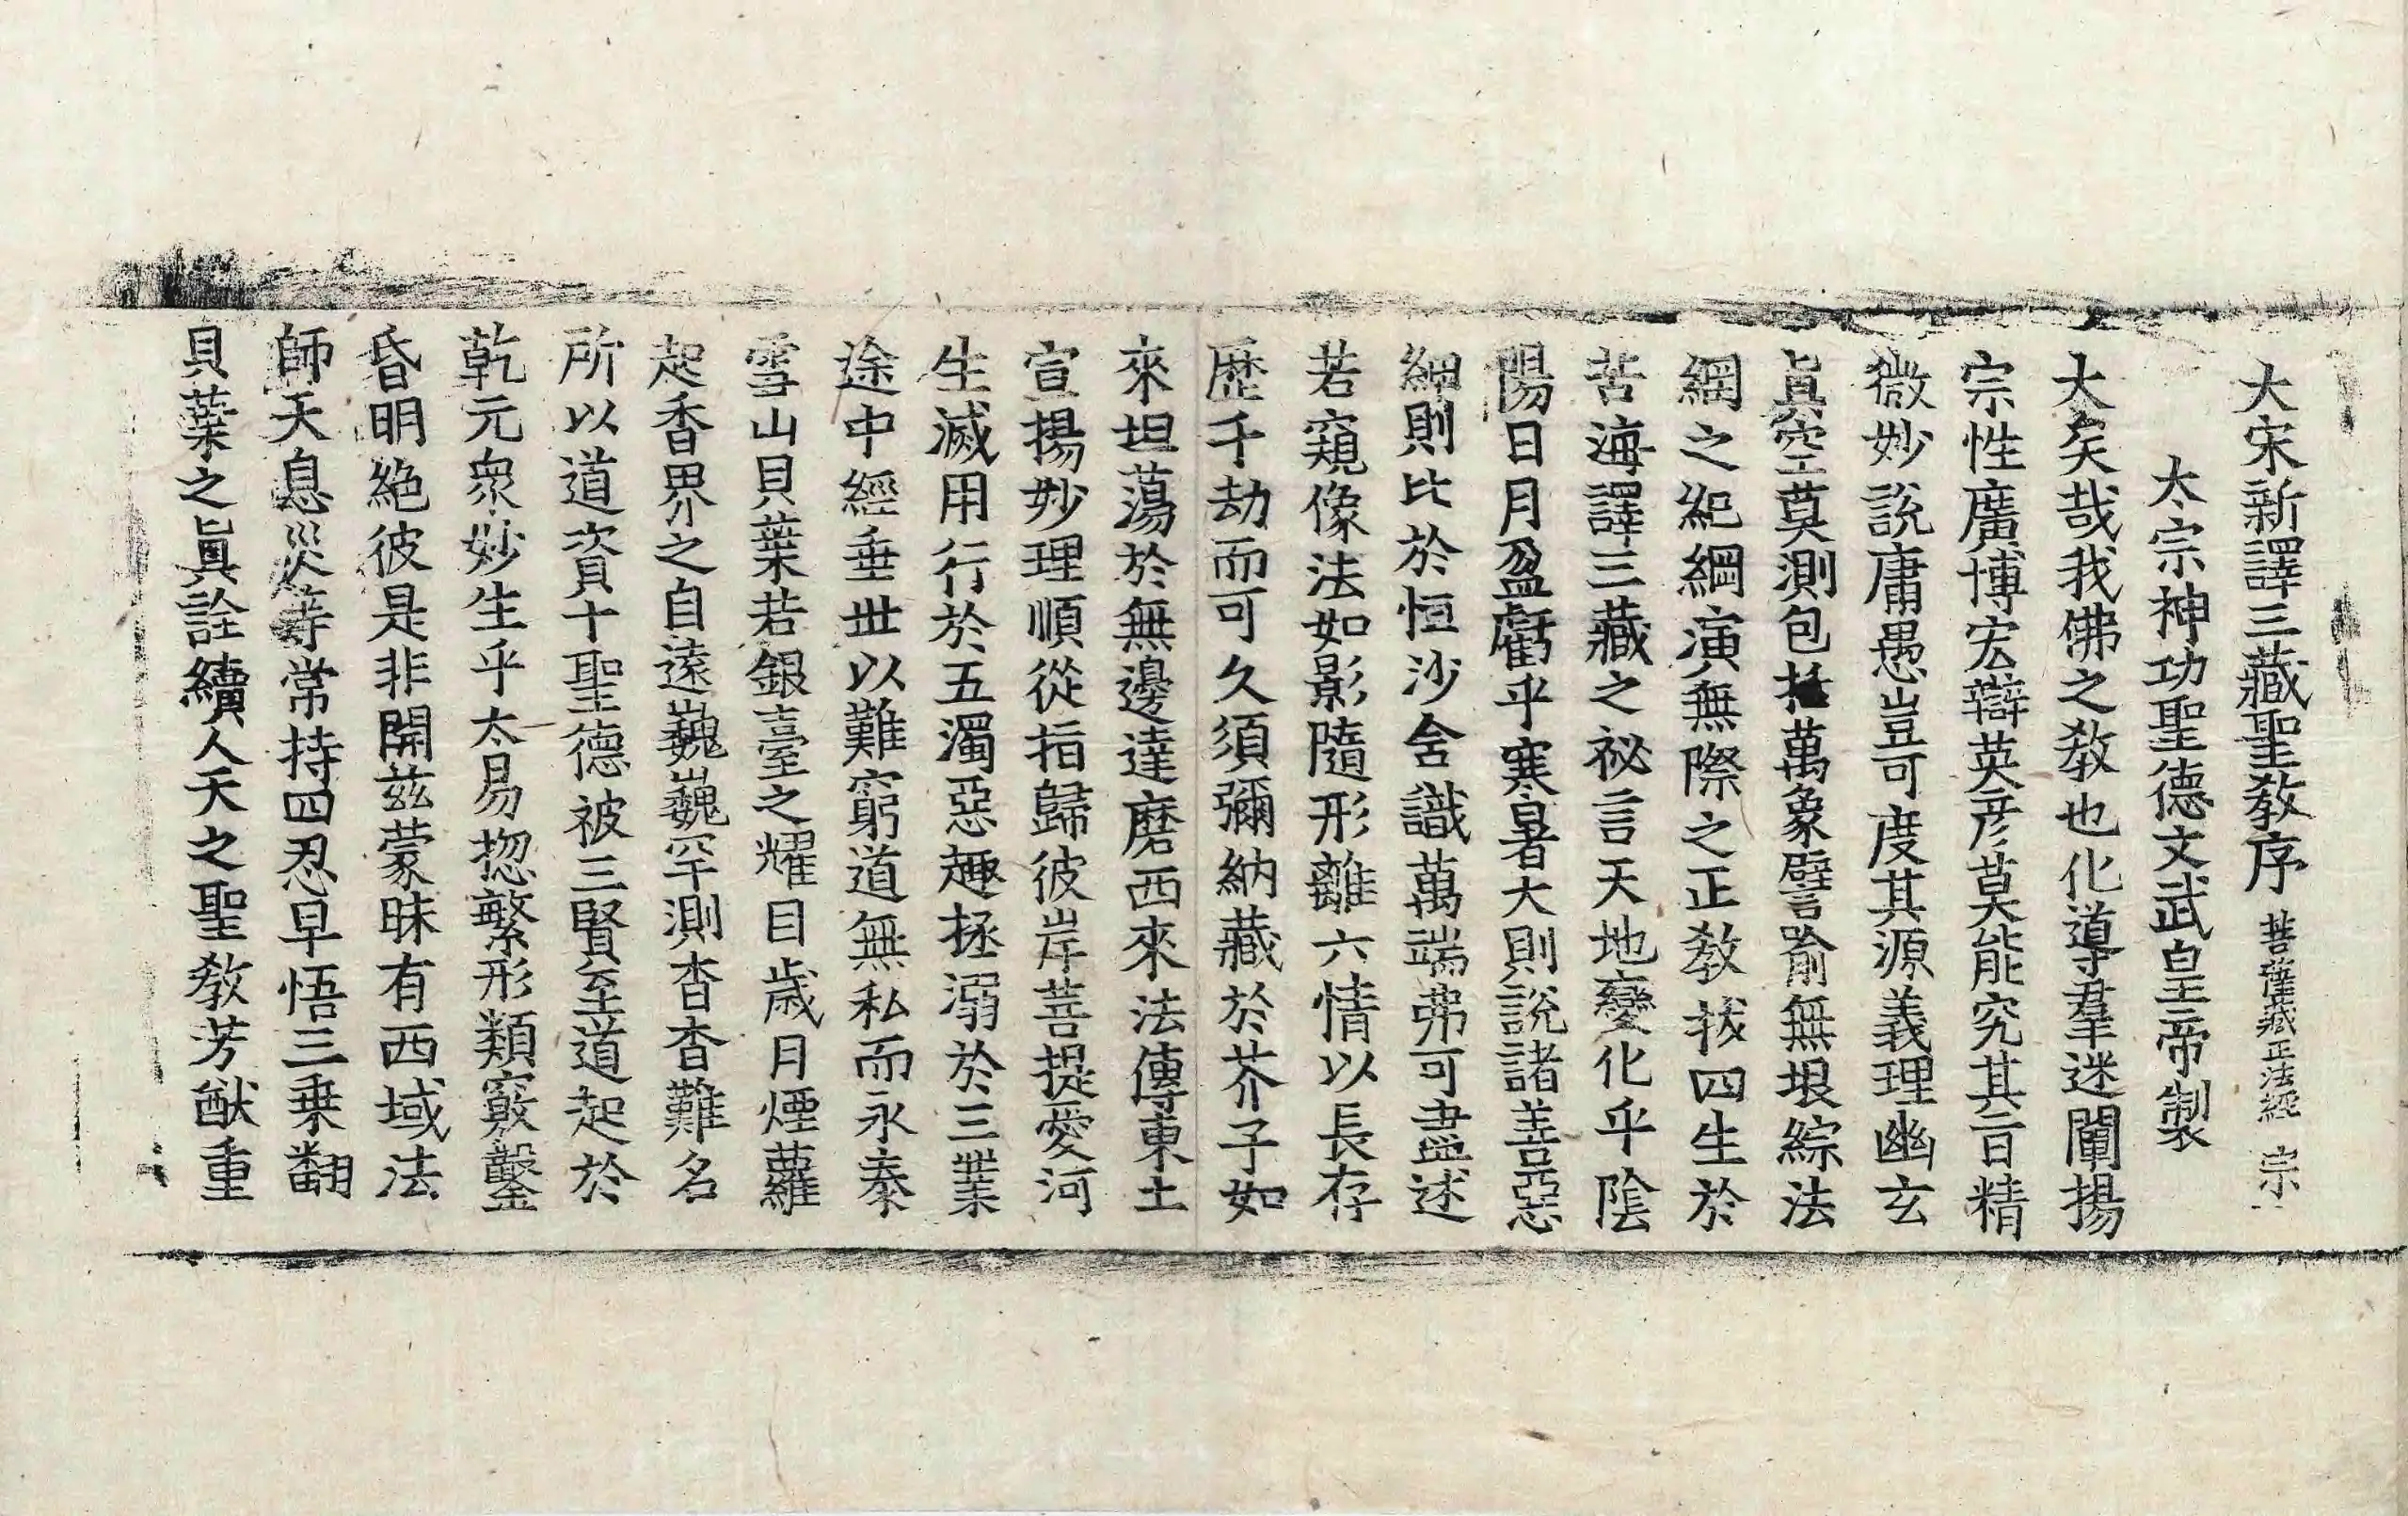 大宋新譯三藏聖教序 菩薩藏正法經 宗
太宗神功聖德文武皇帝製
大矣哉我佛之教也化導羣迷闡揚
宗性廣博宏辯英彦莫能究其旨精
微妙說庸愚豈可度其源義理幽玄
眞空莫測包括萬象譬喻無垠綜法
綱之紀綱演無際之正教拔四生於
苦海譯三藏之祕言天地變化乎陰
陽日月盈虧乎寒暑大則說諸善惡
細則比於恒沙含識萬端弗可盡述
若窺像法如影隨形離六情以長存
歷千劫而可久須彌納藏於芥子如
來坦蕩於無邊達磨西來法傳東土
宣揚妙理順從指歸彼岸菩提愛河
生滅用行於五濁惡趣拯溺於三業
途中經垂世以難窮道無私而永泰
雪山貝葉若銀臺之耀目歲月煙蘿
起香界之自遠巍巍罕測杳杳難名
所以道資十聖德被三賢至道起於
乾元衆妙生乎太易揔繁形類竅鑿
昏明絶彼是非開茲蒙昧有西域法
師天息災等常持四忍早悟三乗翻
貝葉之眞詮續人天之聖教芳猷重